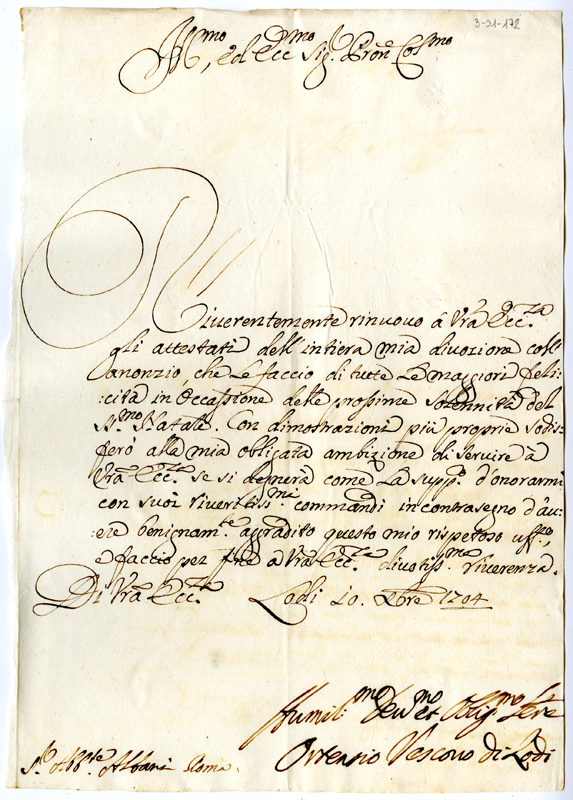 3-01-172
Ill.mo, ed Ecc.mo Sig.r Pron Col.mo
Riverentemente rinuovo à Vrã Ecc.za
gli attestati dell'intiera mia divozione coll'
anonzio, che le faccio di tutte le maggiori feli-
:cità in Occassione delle prossime Solennità del
S.mo Natale. Con dimostrazioni più proprie sodis-
ferò alla mia obligata ambizione di servire à
Vrã Ecc.za se si degnerà come la supp.o d'onorarmi
con suoi riveritiss.mi commandi in contrasegno d'av-
:ere benignam.te aggradito questo mio rispetoso uff.co,
e faccio per fine a Vrã Ecc.za divotiss.ma riverenza.
Di Vrã Ecc.za Lodi 10. Xbre 1704
Humil.mo Dev.mo et Oblig.mo Serre
Ortensio Vescovo di Lodi
S.r Abb.te Albani Roma.